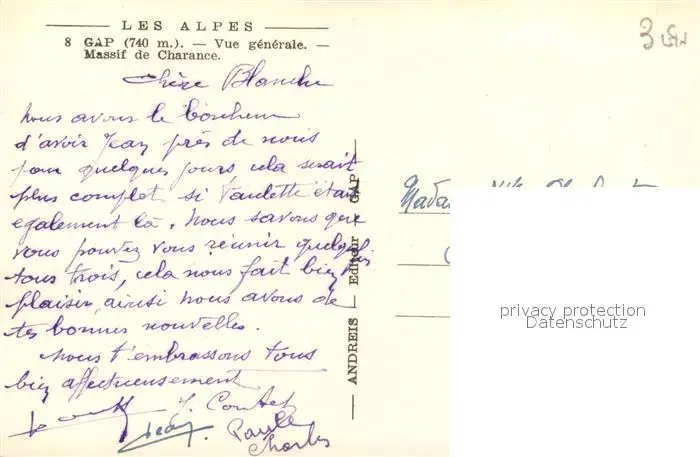 LES ALPES
8 GAP (740 m.). — Vue générale. —
Massif de Charance.
3
Chère Blanche
nous avons le bonheur
d'avoir Jean près de nous
pour quelques jours, cela serait
plus complet si Paulette était
egalement là. Nous savons que
vous pouvez vous réunir quelquefois
tous trois, cela nous fait bien
plaisir, ainsi nous avons de
tes bonnes nouvelles.
nous t'embrassons tous
bien affectueusement
Jean.
Paule
Charles
ANDREIS — Editeur — GAP
privacy protection
Datenschutz